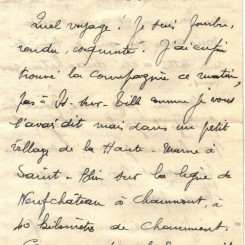 Quel voyage ! Je suis fourbu,
rendu, esquinté. J'ai enfin
trouvé la compagnie ce matin,
pas à Is-sur-Tille comme je vous
l'avais dit mais dans un petit
village de la Haute-Marne à
Saint-Blin sur la ligne de
Neufchâteau à Chaumont, à
40 kilomètres de Chaumont.